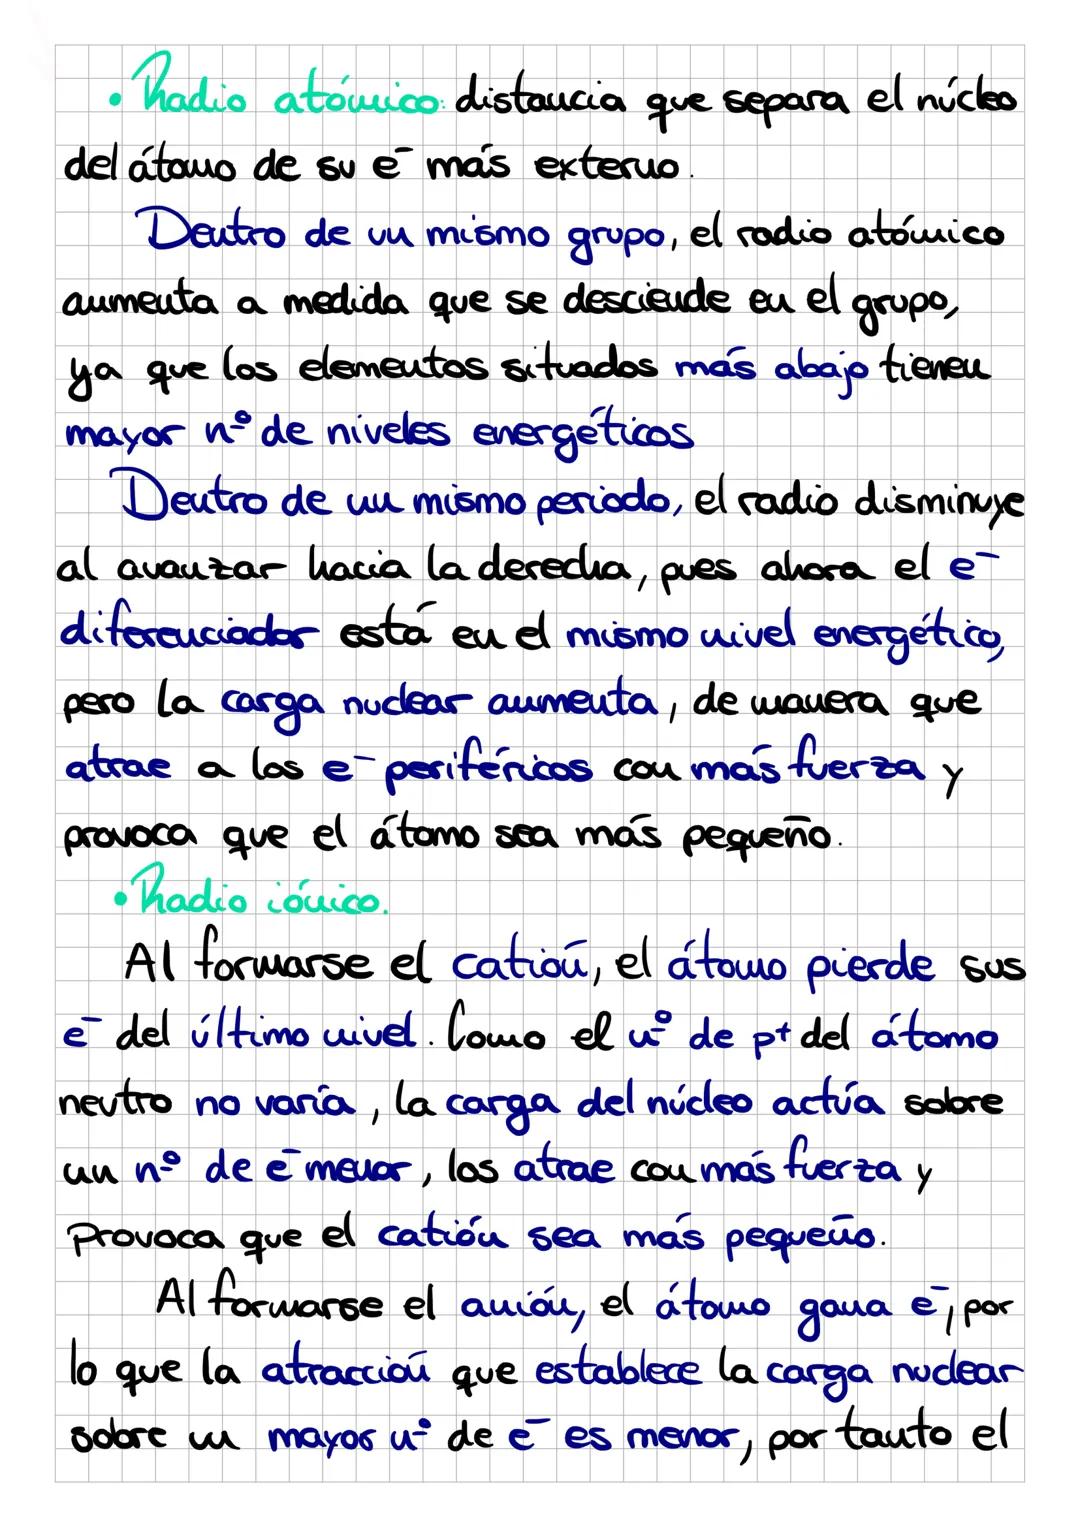 • Radio atómico: distancia que separa el núcleo
del átomo de su e⁻ más externo.
Dentro de un mismo grupo, el radio atómico
aumenta a medida que se desciende en el grupo,
ya que los elementos situados más abajo tienen
mayor nº de niveles energéticos
Dentro de un mismo periodo, el radio disminuye
al avanzar hacia la derecha, pues ahora el e⁻
diferenciador está en el mismo nivel energético,
pero la carga nuclear aumenta, de manera que
atrae a los e⁻ periféricos con más fuerza y
provoca que el átomo sea más pequeño.
• Radio iónico.
Al formarse el catión, el átomo pierde sus
e⁻ del último nivel. Como el nº de p+ del átomo
neutro no varía, la carga del núcleo actúa sobre
un nº de e⁻ menor, los atrae con más fuerza y
provoca que el catión sea más pequeño.
Al formarse el anión, el átomo gana e⁻, por
lo que la atracción que establece la carga nuclear
sobre un mayor nº de e⁻ es menor, por tanto el